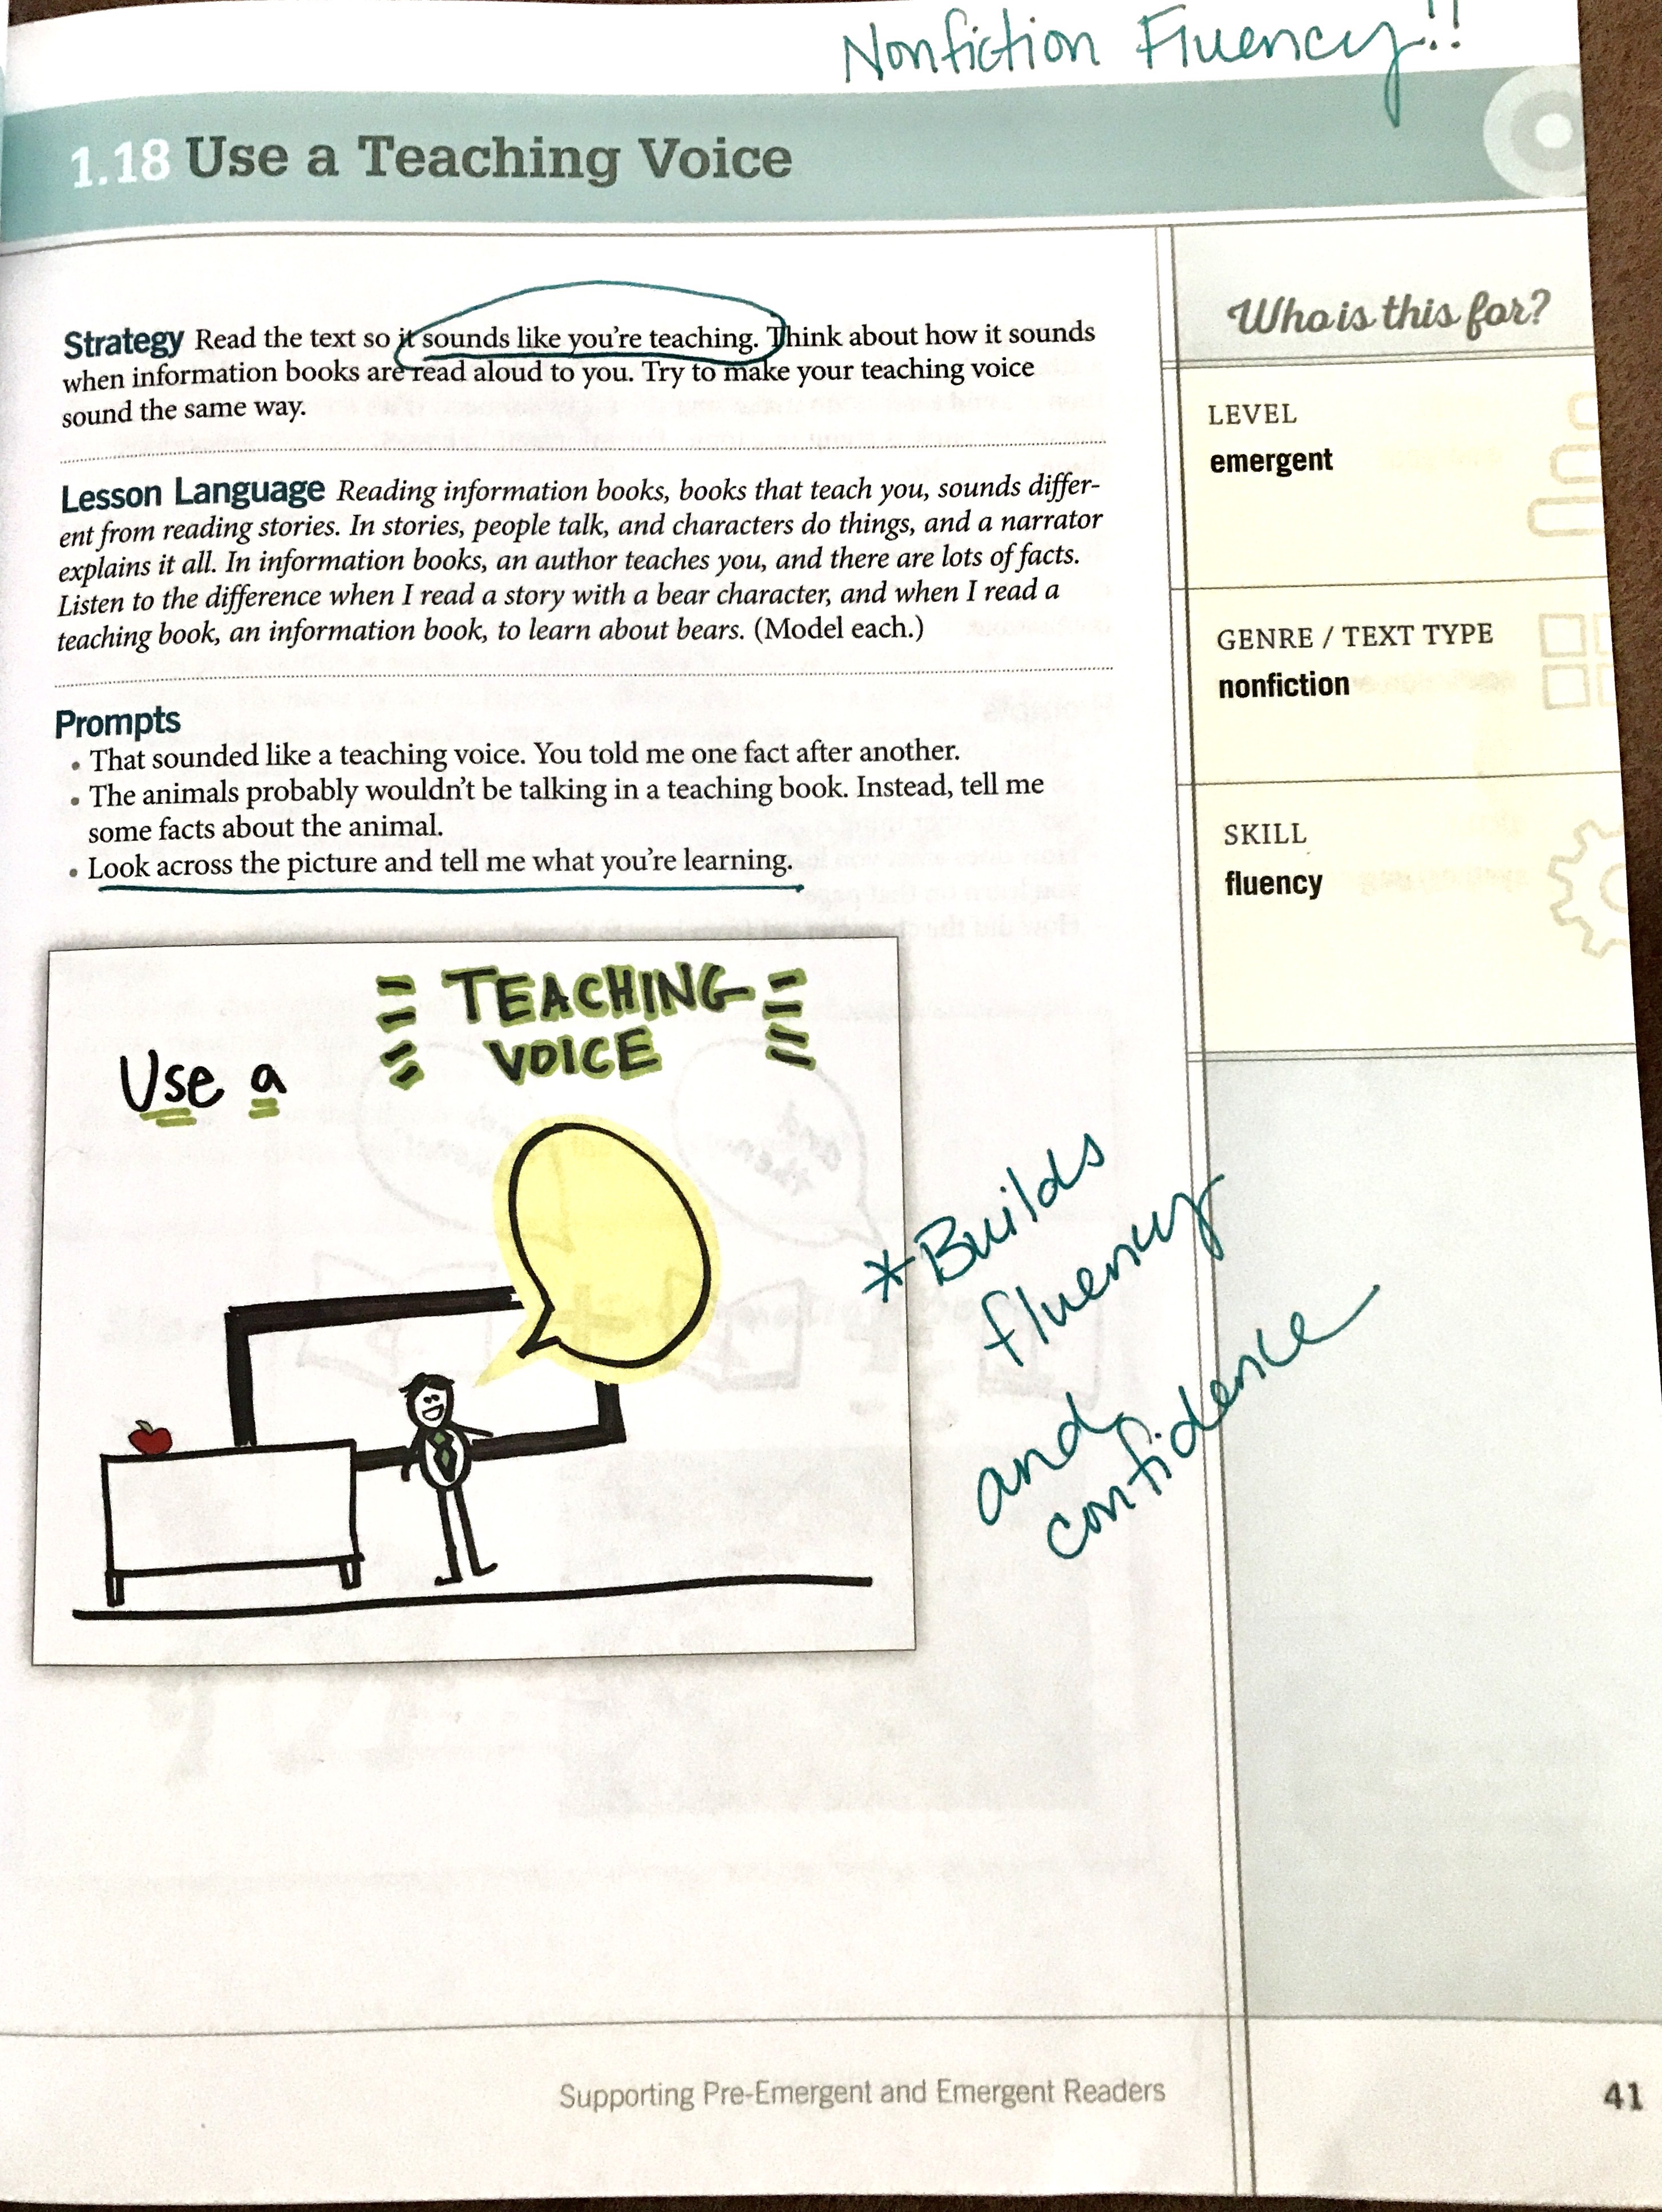 Nonfiction Fluency!!
1.18 Use a Teaching Voice
Strategy Read the text so it sounds like you're teaching. Think about how it sounds
when information books are read aloud to you. Try to make your teaching voice
sound the same way.
Lesson Language Reading information books, books that teach you, sounds differ-
ent from reading stories. In stories, people talk, and characters do things, and a narrator
explains it all. In information books, an author teaches you, and there are lots of facts.
Listen to the difference when I read a story with a bear character, and when I read a
teaching book, an information book, to learn about bears. (Model each.)
Prompts
• That sounded like a teaching voice. You told me one fact after another.
• The animals probably wouldn't be talking in a teaching book. Instead, tell me
some facts about the animal.
• Look across the picture and tell me what you're learning.
Who is this for?
LEVEL
emergent
GENRE / TEXT TYPE
nonfiction
SKILL
fluency
Use a
TEACHING
VOICE
*Builds
fluency
and
confidence
Supporting Pre-Emergent and Emergent Readers
41